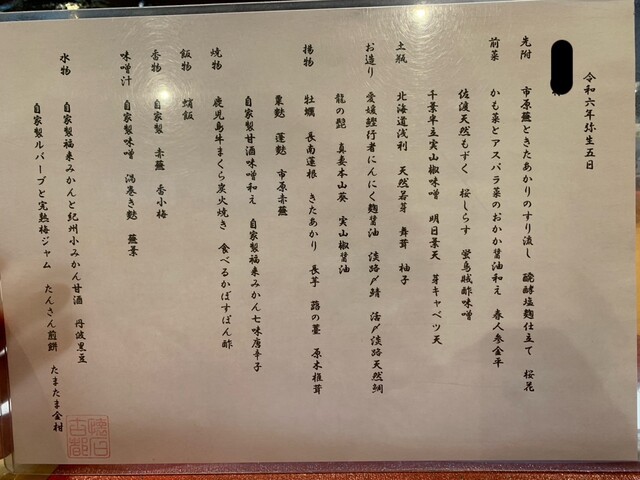 令和六年弥生五日
先附　市原蕪ときたあかりのすり流し　醗酵塩麹仕立て　桜花
前菜　かも菜とアスパラ菜のおかか醤油和え　春人参金平
佐渡天然もずく　桜しらす　蛍烏賊酢味噌
千葉半立実山椒味噌　明日葉天　芽キャベツ天
土瓶　北海道浅利　天然若芽　舞茸　柚子
お造り　愛媛鰹行者にんにく麹醤油　淡路〆鯖　活〆淡路天然鯛
龍の髭　真妻本山葵　実山椒醤油
揚物　牡蠣　長南蓮根　きたあかり　長芋　蕗の薹　原木椎茸
粟麩　蓬麩　市原赤蕪
自家製甘酒味噌和え　自家製福来みかん七味唐辛子
焼物　鹿児島牛まくら炭火焼き　食べるかぼすぽん酢
飯物　蛸飯
香物　自家製　赤蕪　香小梅
味噌汁　自家製味噌　渦巻き麩　蕪葉
水物　自家製福来みかんと紀州小みかん甘酒　丹波黒豆
自家製ルバーブと完熟梅ジャム　たんさん煎餅　たまたま金柑